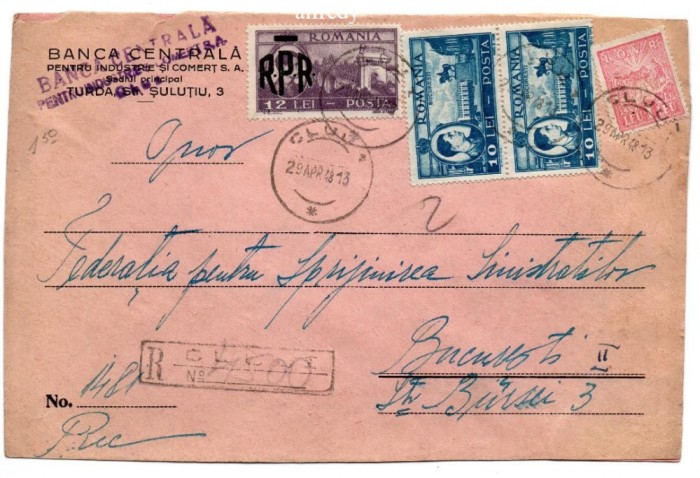 BANCA CENTRALĂ
PENTRU INDUSTRIE ȘI COMERȚ S. A.
Sediul principal
TURDA, Str. ȘULUȚIU, 3
BANCA CENTRALA
PENTRU INDUSTRIE
ROMANIA
R.P.R.
12 LEI POSTA
ROMANIA
10 LEI - POSTA
ROMANIA
10 LEI - POSTA
CLUJ
29 APR 48 13
*
CLUJ
13
*
1 50
2
Federația pentru Sprijinirea Sinistraților
București II
Str. Bursei 3
R CLUJ
No 4500
No. 1481
Rec